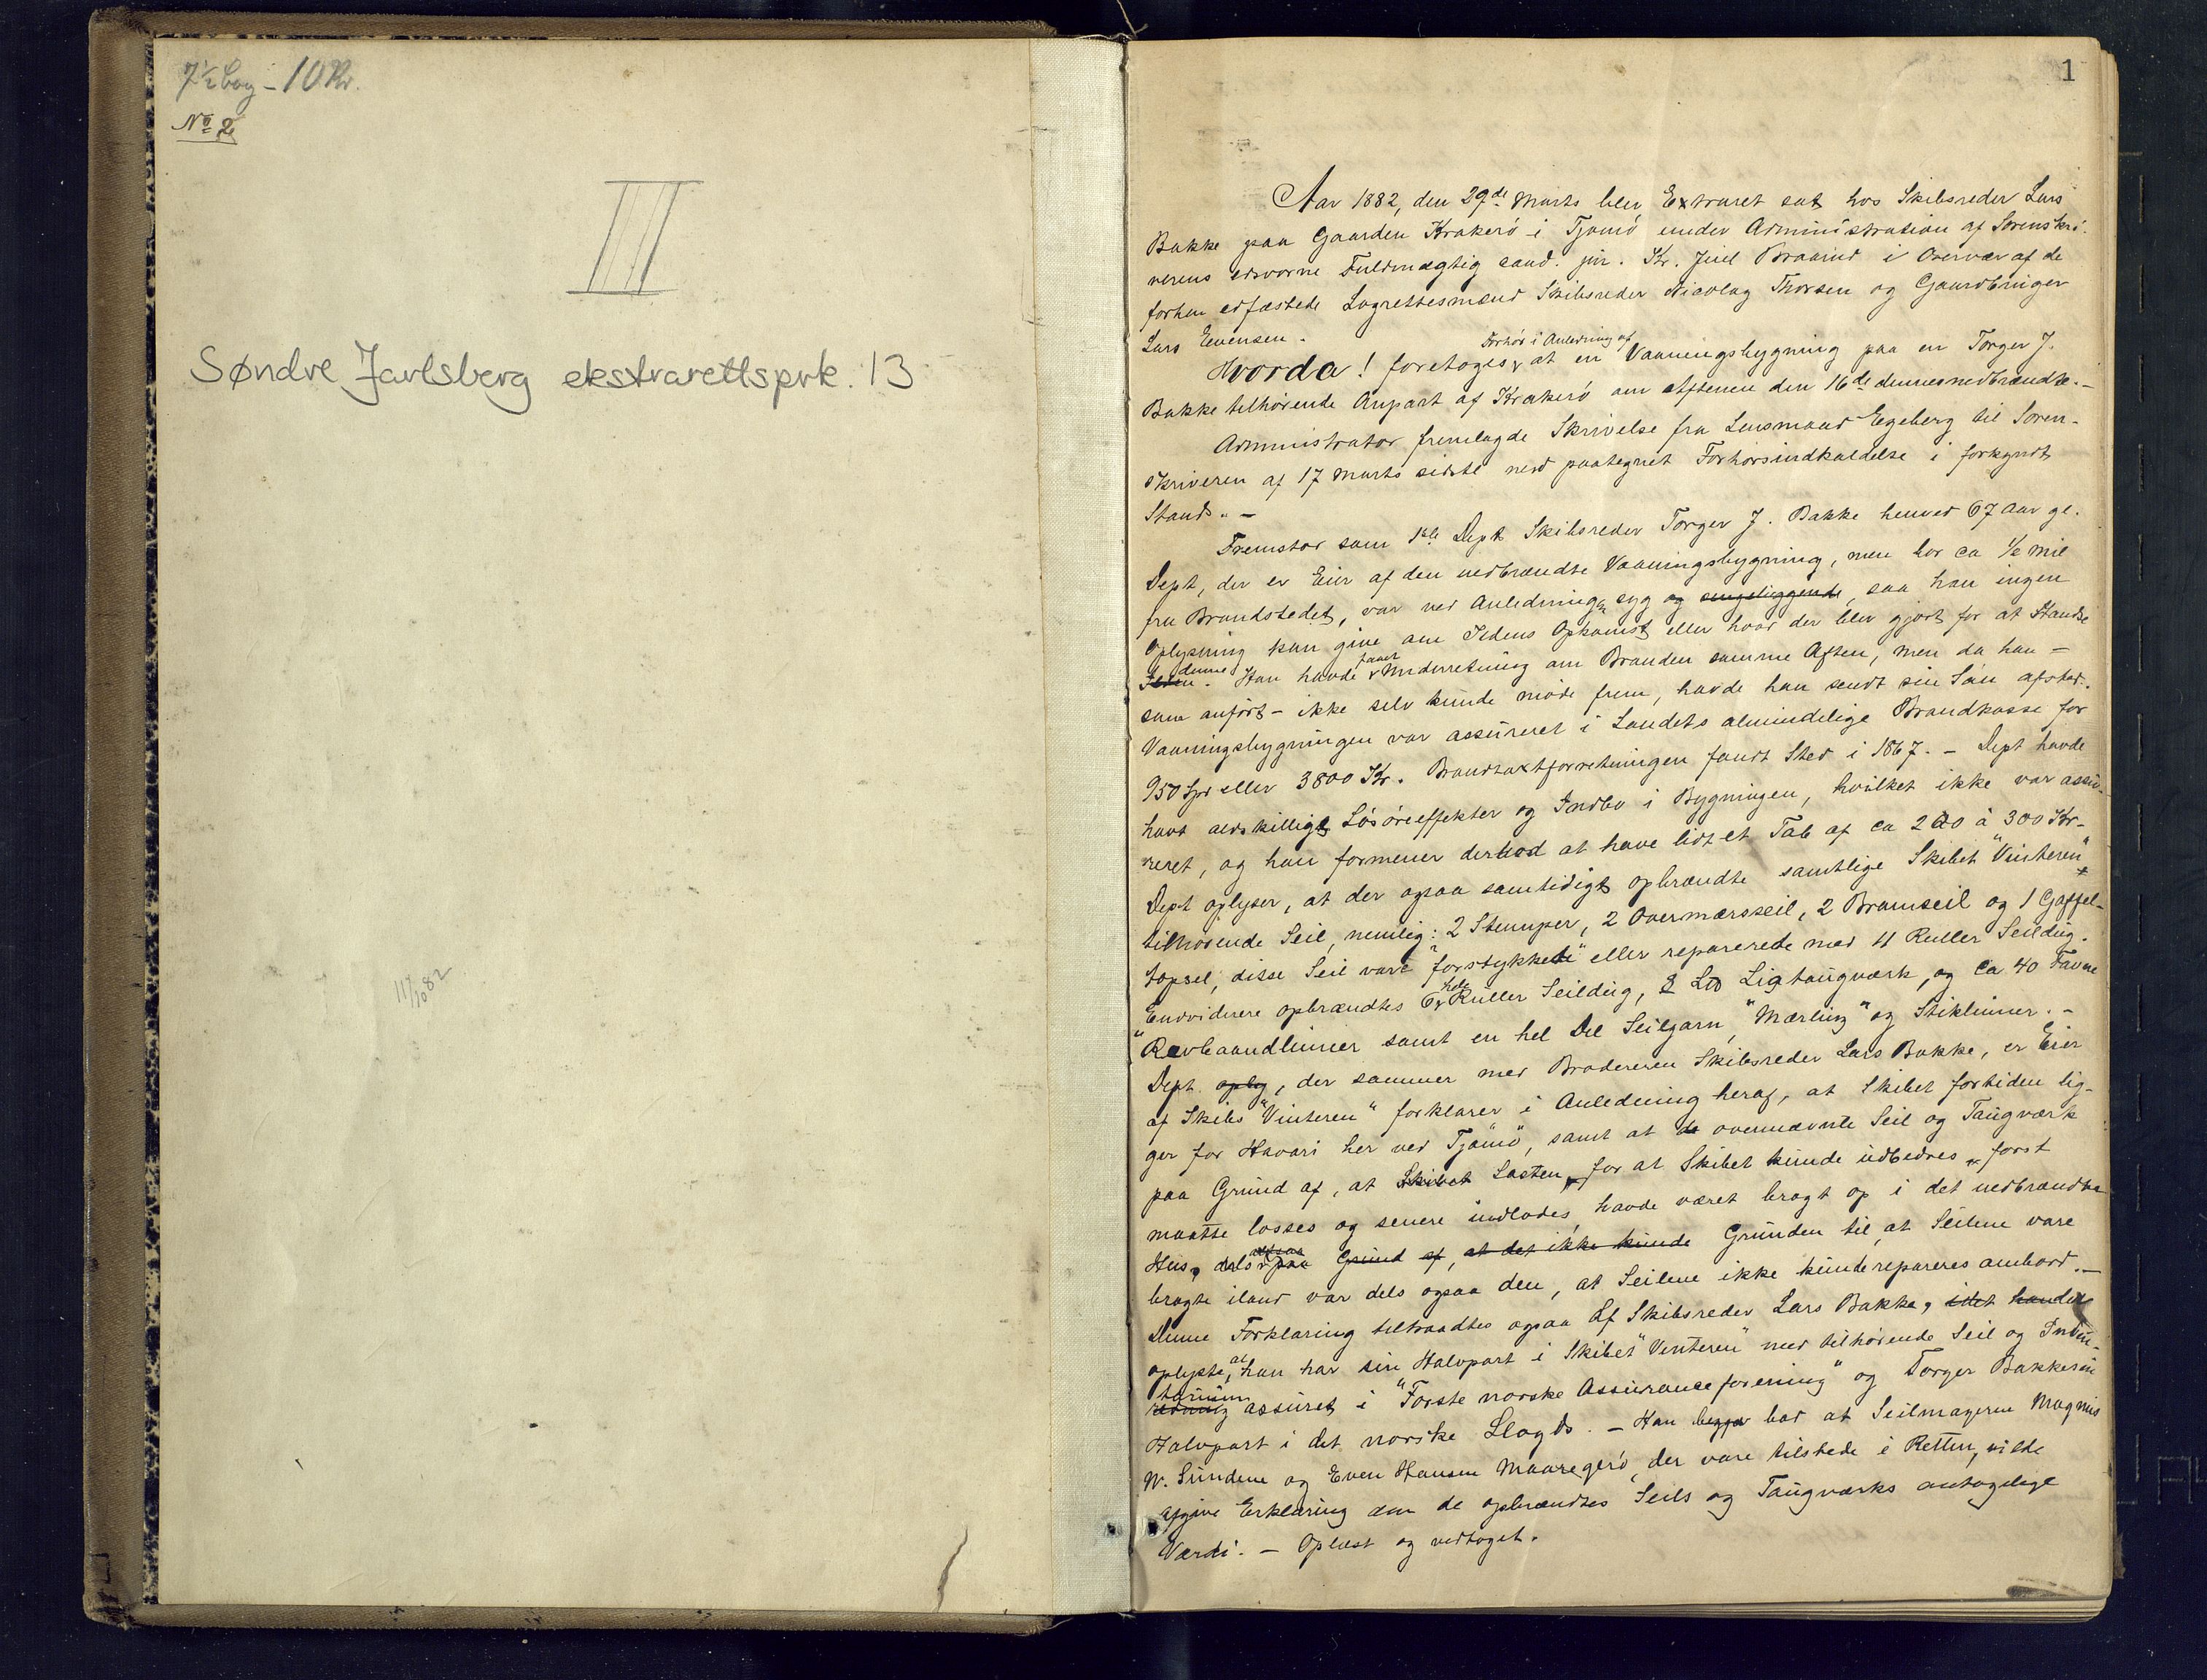 7½ bog - 10 Kr.
No 2
II
Søndre Jarlsberg ekstrarettsprk. 13
11/10 82
1
Aar 1882, den 29de Marts blev Extraret sat hos Skibsreder Lars
Bakke paa Gaarden Krakerö i Tjömö under Administration af Sorenskri-
verens edsvorne Fuldmægtig cand. jur. Kr. Juel Braarud i Overvær af de
forhen edfæstede Lagrettesmænd Skibsreder Nicolay Thorsen og Gaardbruger
Lars Evensen.
Hvorda! foretoges Forhör i Anledning af at en Vaaningsbygning paa en Torger J.
Bakke tilhörende Anpart af Krakerö om Aftenen den 16de dennes nedbrændte. -
Administrator fremlagde Skrivelse fra Lensmand Egeberg til Soren-
skriveren af 17 Marts sidste med paategnet Forhörsindkaldelse i forkyndt
Stand. -
Fremstod som 1ste Dept Skibsreder Torger J. Bakke henved 67 Aar gl.
Dept, der er Eier af den nedbrændte Vaaningsbygning, men bor ca ½ Mil
fra Brandstedet, var ved Anledningen syg og sengeliggende, saa han ingen
Oplysning kan give om Ildens Opkomst eller hvad der blev gjort for at standse
Ilden denne. Han havde faaet Underretning om Branden samme Aften, men da han -
som anfört - ikke selv kunde möde frem, havde han sendt sin Sön afsted.
Vaaningsbygningen var assureret i Landets almindelige Brandkasse for
950 Spd eller 3800 Kr. Brandtaxtforretningen fandt Sted i 1867. - Dept havde
havt adskillige Lösöreeffekter og Indbo i Bygningen, hvilket ikke var assu-
reret, og han formener derved at have lidt et Tab af ca 200 à 300 Kr -
Dept oplyser, at der ogsaa samtidigt opbrændte samtlige Skibet "Vinteren"
tilhörende Seil, nemlig: 2 Stumper, 2 Overmærsseil, 2 Bramseil og 1 Gaffel-
topsel, disse Seil vare "forstykkede" eller reparerede med 4 Ruller Seildug.
Endvidere opbrændtes 6 hele Ruller Seildug, 2 L℔ Ligtaugværk, og ca 40 Favne
"Revbaandliner samt en hel Del Seilgarn, "Mærling" og Stikliner. -
Dept. oply, der sammen med Broderen Skibsreder Lars Bakke, er Eier
af Skibs "Vinteren" forklarer i Anledning heraf, at Skibet fortiden lig-
ger for Havari her ved Tjömö, samt at de ovennævnte Seil og Taugværk
paa Grund af, at Skibet Lasten, for at Skibet kunde udbedres, först
maatte losses og senere indlades, havde været bragt op i det nedbrændte
Hus, dels ogsaa paa Grund af, at det ikke kunde Grunden til, at Seilene vare
bragte iland var dels ogsaa den, at Seilene ikke kunde repareres ombord. -
Denne Forklaring tiltraadtes ogsaa af Skibsreder Lars Bakke, idet han der
oplyste, at han har sin Halvpart i Skibet "Vinteren" med tilhörende Seil og Inven-
tarium assuret i "Förste norske Assuranceforening" og Torger Bakke sin
Halvpart i det norske Lloyds. - Han begjær bad at Seilmagerne Magnus
W. Sundene og Even Hansen Maagerö, der vare tilstede i Retten, vilde
afgive Erklæring om de opbrændtes Seils og Taugværks antagelige
Værdi. - Oplæst og vedtaget.